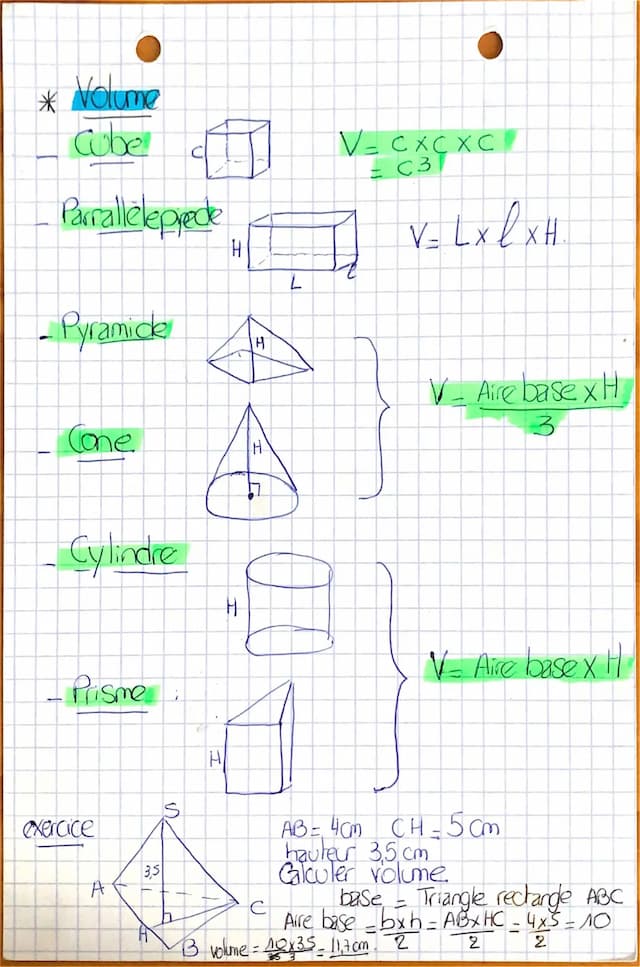 * Volume
- Cube
C
V = C x C x C
= C³
- Parrallélepipede
H
L
l
V = L x l x H.
- Pyramide
H
- Cone
H
V = Aire base x H
3
- Cylindre
H
- Prisme :
H
V = Aire base x H
exercice
S
3,5
A
C
H
B
AB = 4cm CH = 5cm
hauteur 3,5cm
Calculer volume.
base = Triangle rectangle ABC
Aire base = b x h / 2 = AB x HC / 2 = 4 x 5 / 2 = 10
volume = 10 x 3,5 / 3 = 11,7cm.